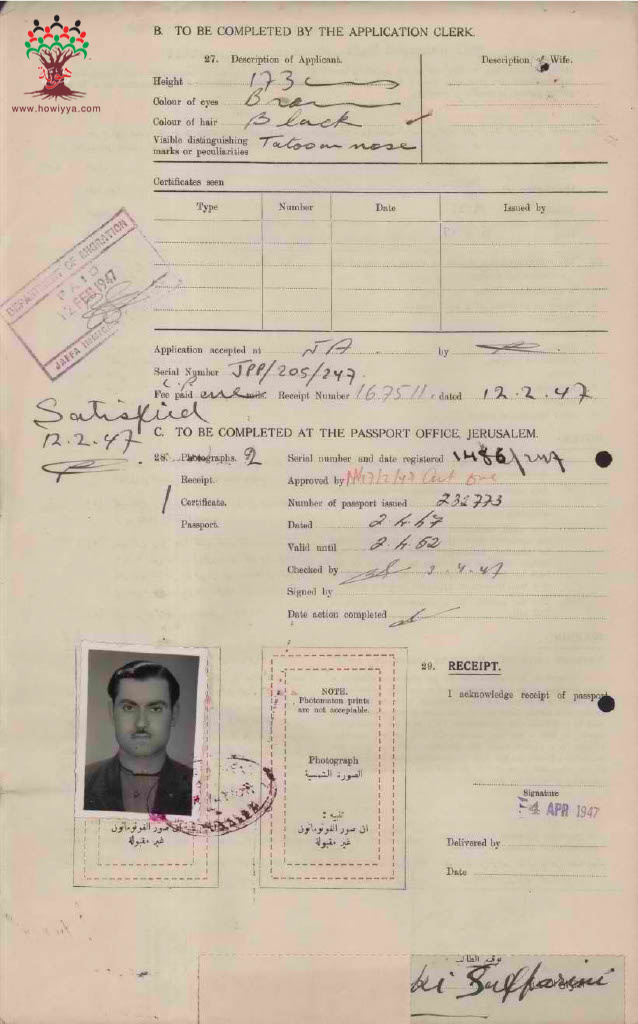 www.howiyya.com
B. TO BE COMPLETED BY THE APPLICATION CLERK.
27. Description of Applicant.
Description of Wife.
Height 173
Colour of eyes Brown
Colour of hair Black
Visible distinguishing
marks or peculiarities nose
Certificates seen
Type Number Date Issued by
DEPARTMENT OF MIGRATION
PAID
12 FEB 1947
JAFFA
Application accepted at JA by
Serial Number JPP/205/247.
Fee paid Receipt Number 167511. dated 12.2.47
Satisfied
12.2.47
C. TO BE COMPLETED AT THE PASSPORT OFFICE, JERUSALEM.
28. Photographs. 2 Serial number and date registered 1486/247
Receipt. Approved by
Certificate. Number of passport issued 232773
Passport. Dated 2.4.47
Valid until 2.4.52
Checked by 3.4.47
Signed by
Date action completed
29. RECEIPT.
I acknowledge receipt of passport
NOTE.
Photomaton prints
are not acceptable.
Photograph
الصورة الشمسية
تنبيه :
ان صور الفوتوماتون
غير مقبولة
ان صور الفوتوماتون
غير مقبولة
Signature
4 APR 1947
Delivered by
Date
توقيع الطالب